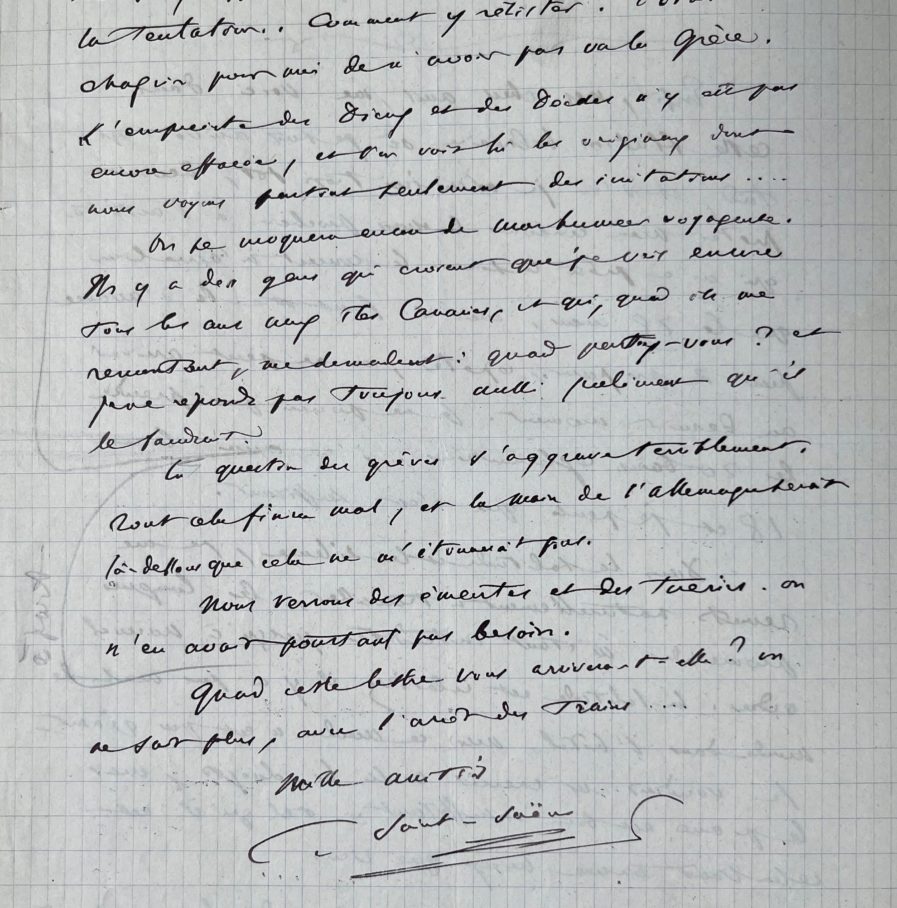 la tentation.. Comment y résister.
chagrin pour moi de n'avoir pas vu la Grèce.
L'empreinte des Dieux et des Déesses n'y est pas
encore effacée, et l'on voit là les originaux dont
nous voyons partout seulement des imitations ....
On se moquera encore de mon humeur voyageuse.
Il y a des gens qui croient que je vais encore
tous les ans aux Iles Canaries, et qui, quand ils me
rencontrent, me demandent: quand partez-vous? et
je ne réponds pas toujours aussi poliment qu'il
le faudrait.
La question des grèves s'aggrave terriblement.
Tout cela finira mal, et la main de l'Allemagne serait
là-dessous que cela ne m'étonnerait pas.
Nous verrons des émeutes et des tueries. on
n'en avait pourtant pas besoin.
Quand cette lettre vous arrivera-t-elle? on
ne sait plus, avec l'arrêt des trains ....
Mille amitiés
Saint-Saëns